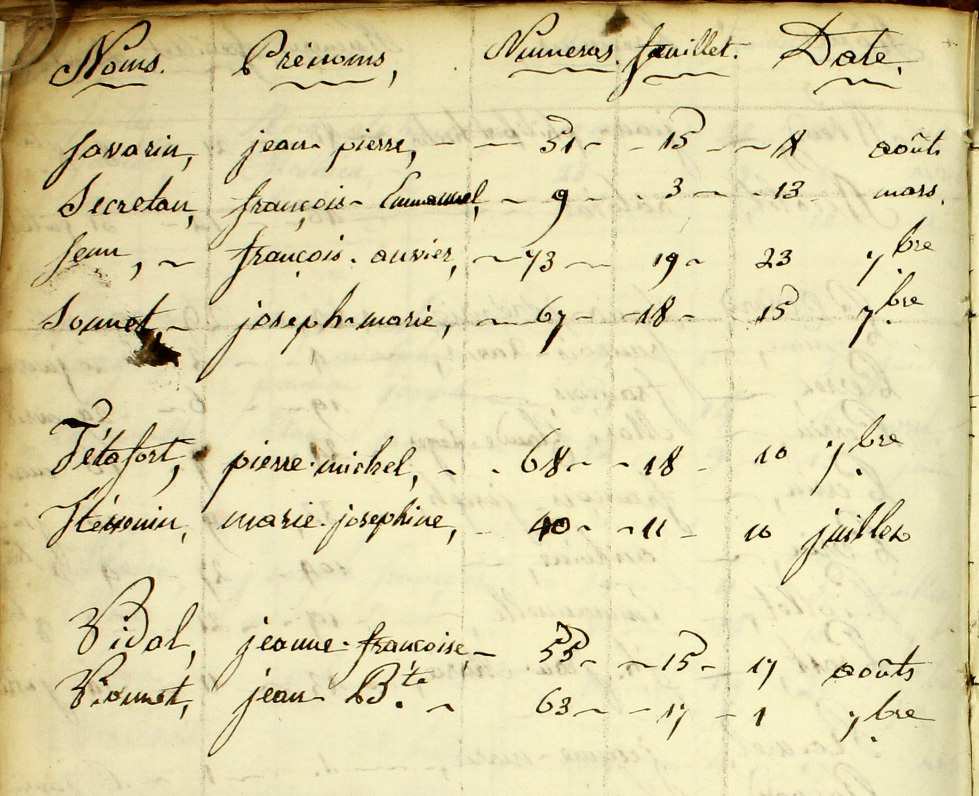 Noms. Prénoms, Numeros. feuillet. Date.
Savarin, jean pierre, 51 15 11 août
Secretan, françois Emmanuel, 9 3 13 mars.
françois xavier, 73 19 23 7bre
Sonnet, joseph-marie, 67 18 15 7bre
Tétafort, pierre michel, 68 18 10 7bre
marie josephine, 40 11 10 juillet
Vidal, jeanne françoise, 55 15 17 août
Vionnet, jean Bte. 63 17 1 7bre